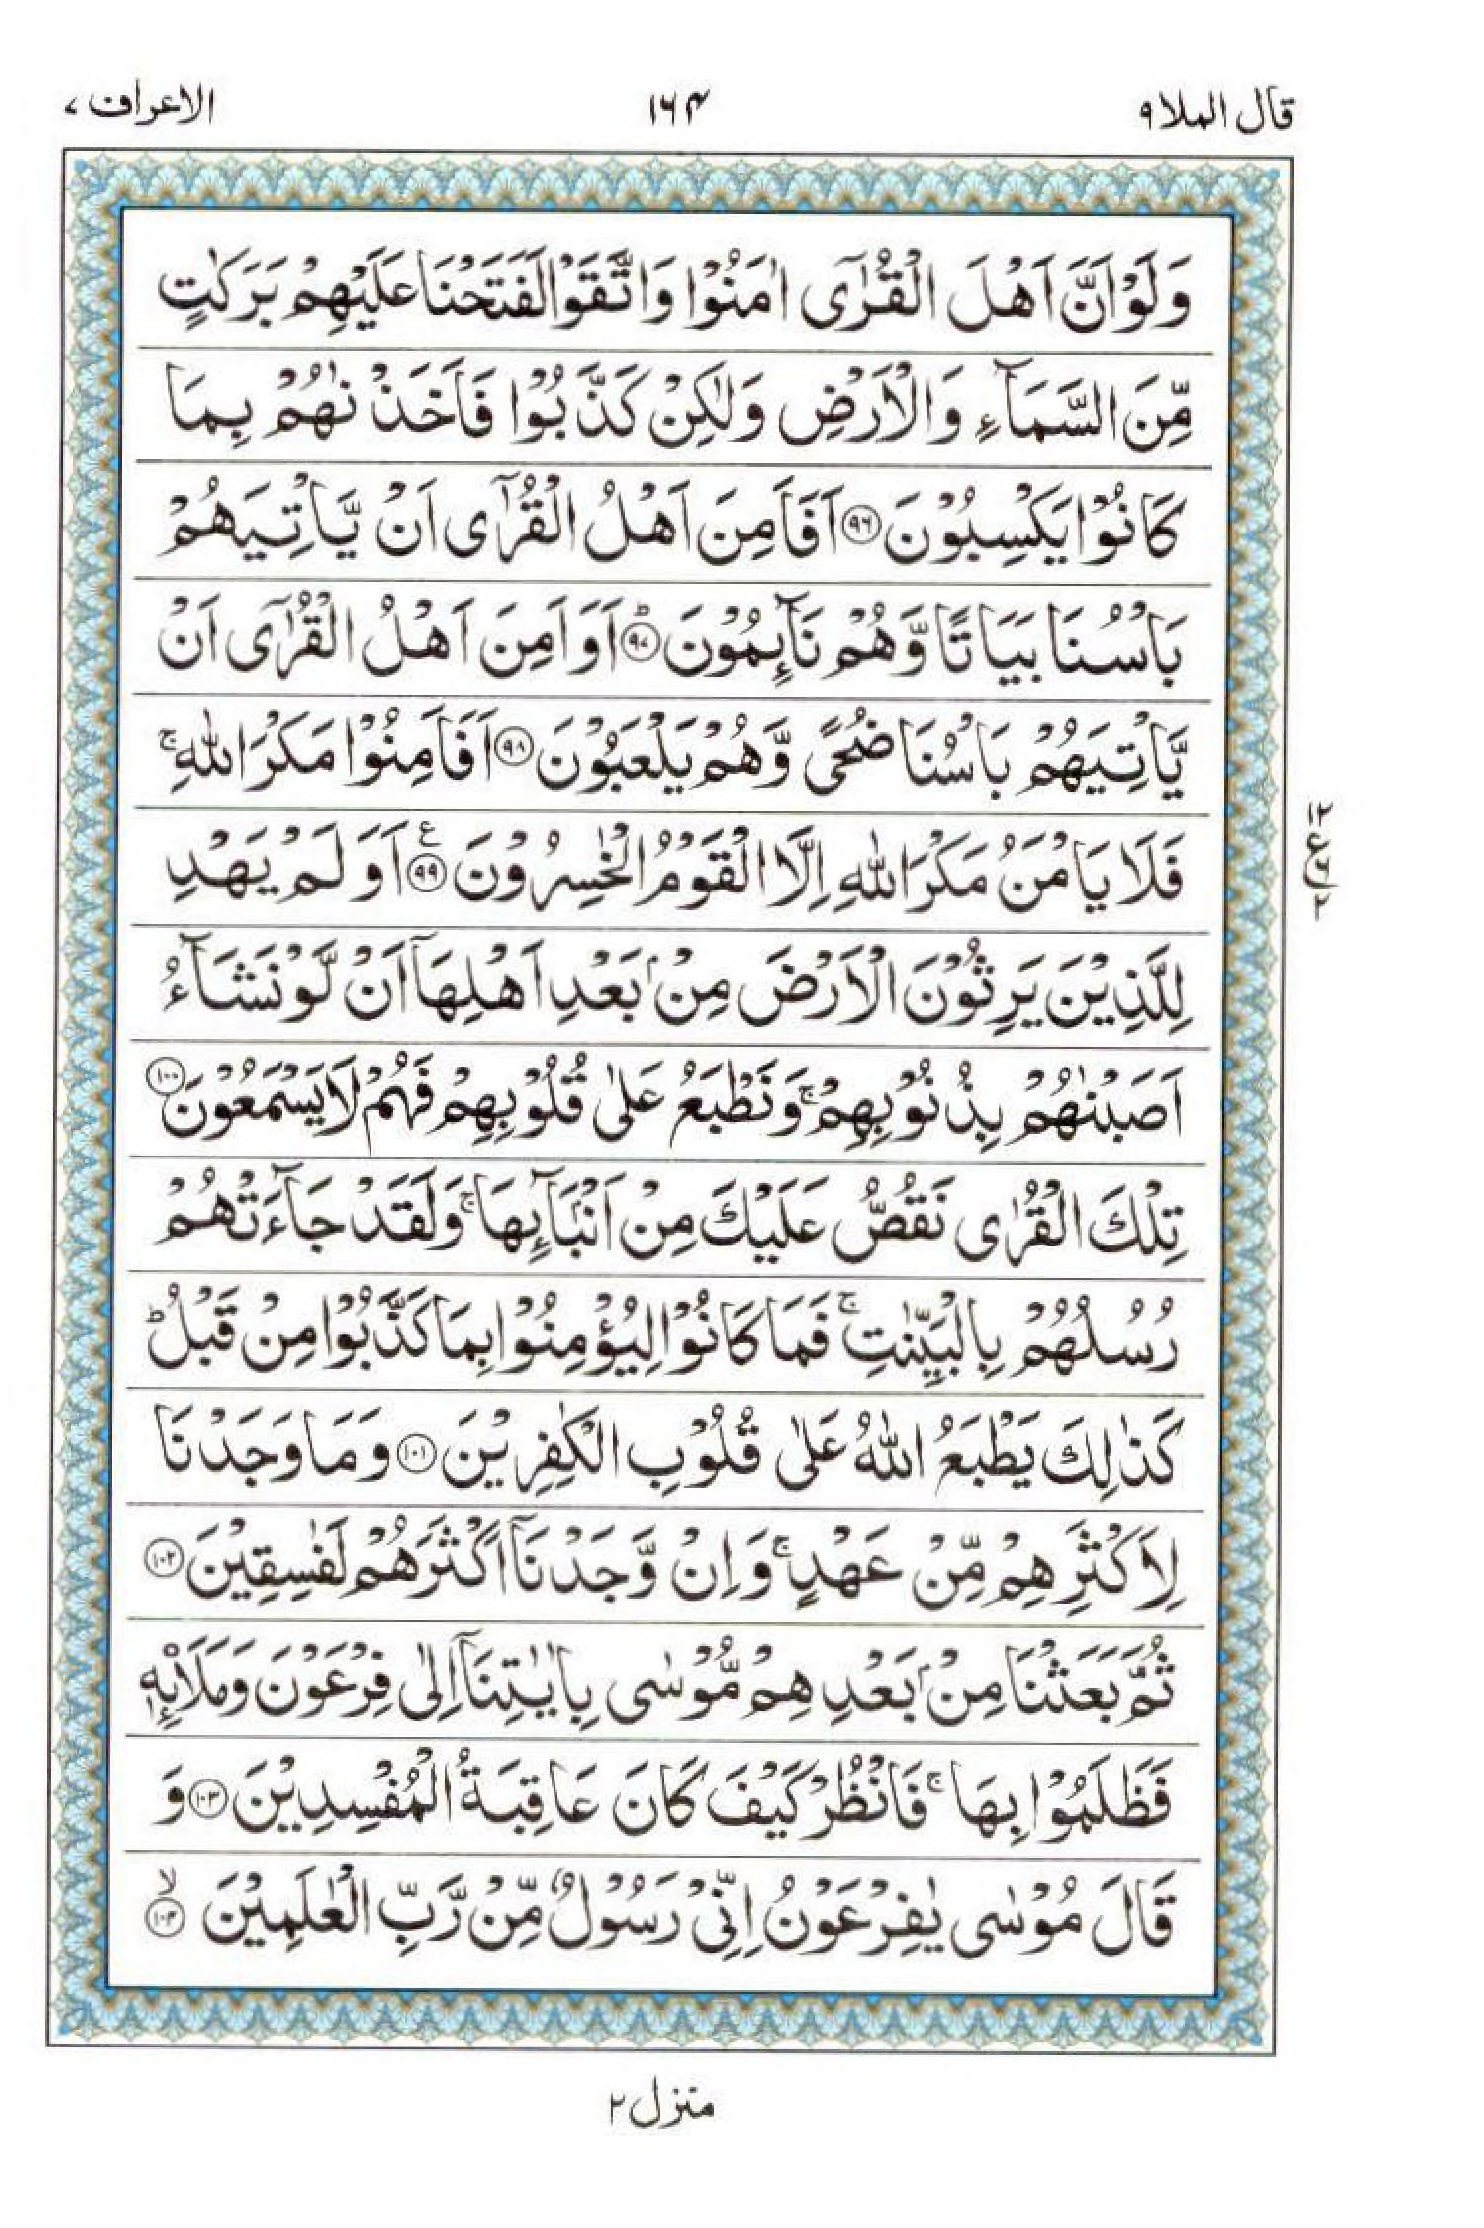 قال الملا ٩ ١٦٤ الاعراف ٧
وَلَوْ اَنَّ اَهْلَ الْقُرٰٓى اٰمَنُوْا وَاتَّقَوْا لَفَتَحْنَا عَلَيْهِمْ بَرَكٰتٍ
مِّنَ السَّمَآءِ وَالْاَرْضِ وَلٰكِنْ كَذَّبُوْا فَاَخَذْنٰهُمْ بِمَا
كَانُوْا يَكْسِبُوْنَ ﴿٩٦﴾ اَفَاَمِنَ اَهْلُ الْقُرٰٓى اَنْ يَّاْتِيَهُمْ
بَاْسُنَا بَيَاتًا وَّهُمْ نَآئِمُوْنَ ؕ﴿٩٧﴾ اَوَ اَمِنَ اَهْلُ الْقُرٰٓى اَنْ
يَّاْتِيَهُمْ بَاْسُنَا ضُحًى وَّهُمْ يَلْعَبُوْنَ ﴿٩٨﴾ اَفَاَمِنُوْا مَكْرَ اللّٰهِ ۚ
فَلَا يَاْمَنُ مَكْرَ اللّٰهِ اِلَّا الْقَوْمُ الْخٰسِرُوْنَ ﴿٩٩﴾ ع اَوَلَمْ يَهْدِ
١٢ ع ٦ ٢
لِلَّذِيْنَ يَرِثُوْنَ الْاَرْضَ مِنْۢ بَعْدِ اَهْلِهَآ اَنْ لَّوْ نَشَآءُ
اَصَبْنٰهُمْ بِذُنُوْبِهِمْ ۚ وَنَطْبَعُ عَلٰى قُلُوْبِهِمْ فَهُمْ لَا يَسْمَعُوْنَ ﴿١٠٠﴾
تِلْكَ الْقُرٰى نَقُصُّ عَلَيْكَ مِنْ اَنْۢبَآئِهَا ۚ وَلَقَدْ جَآءَتْهُمْ
رُسُلُهُمْ بِالْبَيِّنٰتِ ۚ فَمَا كَانُوْا لِيُؤْمِنُوْا بِمَا كَذَّبُوْا مِنْ قَبْلُ ؕ
كَذٰلِكَ يَطْبَعُ اللّٰهُ عَلٰى قُلُوْبِ الْكٰفِرِيْنَ ﴿١٠١﴾ وَمَا وَجَدْنَا
لِاَكْثَرِهِمْ مِّنْ عَهْدٍ ۚ وَاِنْ وَّجَدْنَآ اَكْثَرَهُمْ لَفٰسِقِيْنَ ﴿١٠٢﴾
ثُمَّ بَعَثْنَا مِنْۢ بَعْدِهِمْ مُّوْسٰى بِاٰيٰتِنَآ اِلٰى فِرْعَوْنَ وَمَلَا۟ئِهٖ
فَظَلَمُوْا بِهَا ۚ فَانْظُرْ كَيْفَ كَانَ عَاقِبَةُ الْمُفْسِدِيْنَ ﴿١٠٣﴾ وَ
قَالَ مُوْسٰى يٰفِرْعَوْنُ اِنِّىْ رَسُوْلٌ مِّنْ رَّبِّ الْعٰلَمِيْنَ ۙ﴿١٠٤﴾
منزل ٢